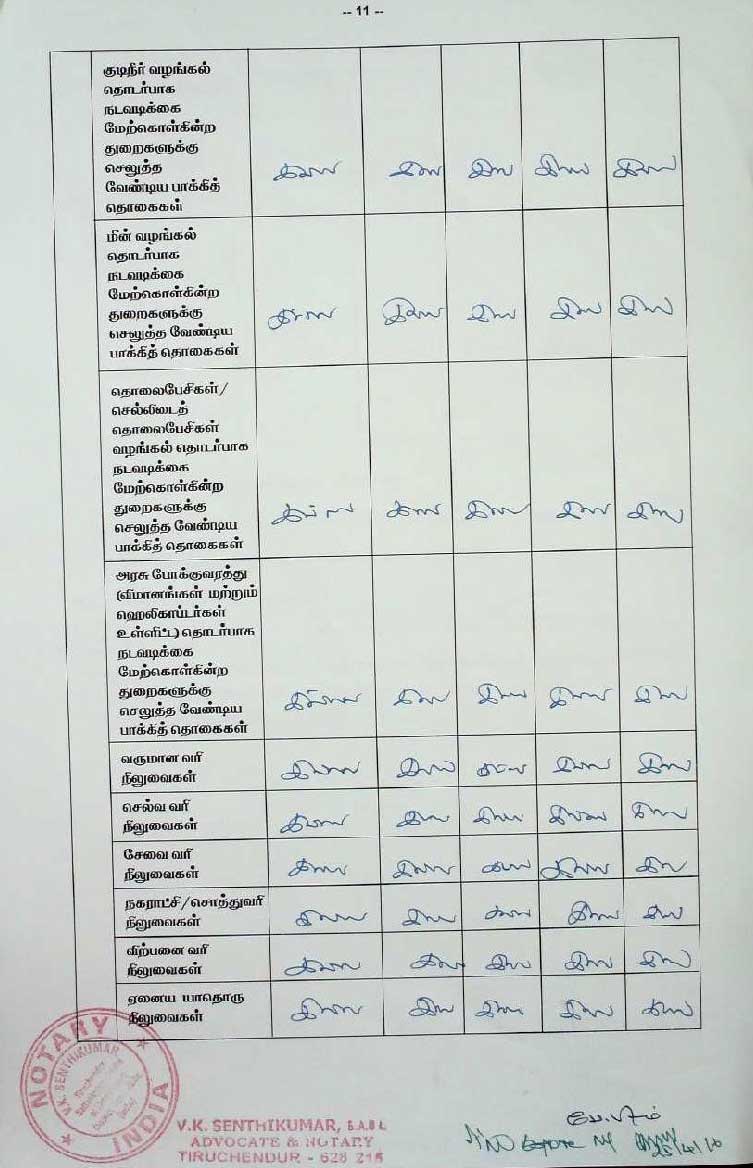 -- 11 --
குடிநீர் வழங்கல்
தொடர்பாக
நடவடிக்கை
மேற்கொள்கின்ற
துறைகளுக்கு
செலுத்த
வேண்டிய பாக்கித்
தொகைகள்
இல்லை இல்லை இல்லை இல்லை இல்லை
மின் வழங்கல்
தொடர்பாக
நடவடிக்கை
மேற்கொள்கின்ற
துறைகளுக்கு
செலுத்த வேண்டிய
பாக்கித் தொகைகள்
இல்லை இல்லை இல்லை இல்லை இல்லை
தொலைபேசிகள்/
செல்லிடைத்
தொலைபேசிகள்
வழங்கல் தொடர்பாக
நடவடிக்கை
மேற்கொள்கின்ற
துறைகளுக்கு
செலுத்த வேண்டிய
பாக்கித் தொகைகள்
இல்லை இல்லை இல்லை இல்லை இல்லை
அரசு போக்குவரத்து
(விமானங்கள் மற்றும்
ஹெலிகாப்டர்கள்
உள்ளிட்ட) தொடர்பாக
நடவடிக்கை
மேற்கொள்கின்ற
துறைகளுக்கு
செலுத்த வேண்டிய
பாக்கித் தொகைகள்
இல்லை இல்லை இல்லை இல்லை இல்லை
வருமான வரி
நிலுவைகள்
இல்லை இல்லை இல்லை இல்லை இல்லை
செல்வ வரி
நிலுவைகள்
இல்லை இல்லை இல்லை இல்லை இல்லை
சேவை வரி
நிலுவைகள்
இல்லை இல்லை இல்லை இல்லை இல்லை
நகராட்சி/சொத்துவரி
நிலுவைகள்
இல்லை இல்லை இல்லை இல்லை இல்லை
விற்பனை வரி
நிலுவைகள்
இல்லை இல்லை இல்லை இல்லை இல்லை
ஏனைய யாதொரு
நிலுவைகள்
இல்லை இல்லை இல்லை இல்லை இல்லை
NOTARY
V.K. SENTHIKUMAR
INDIA
V.K. SENTHIKUMAR, B.A.B.L
ADVOCATE & NOTARY
TIRUCHENDUR - 628 215